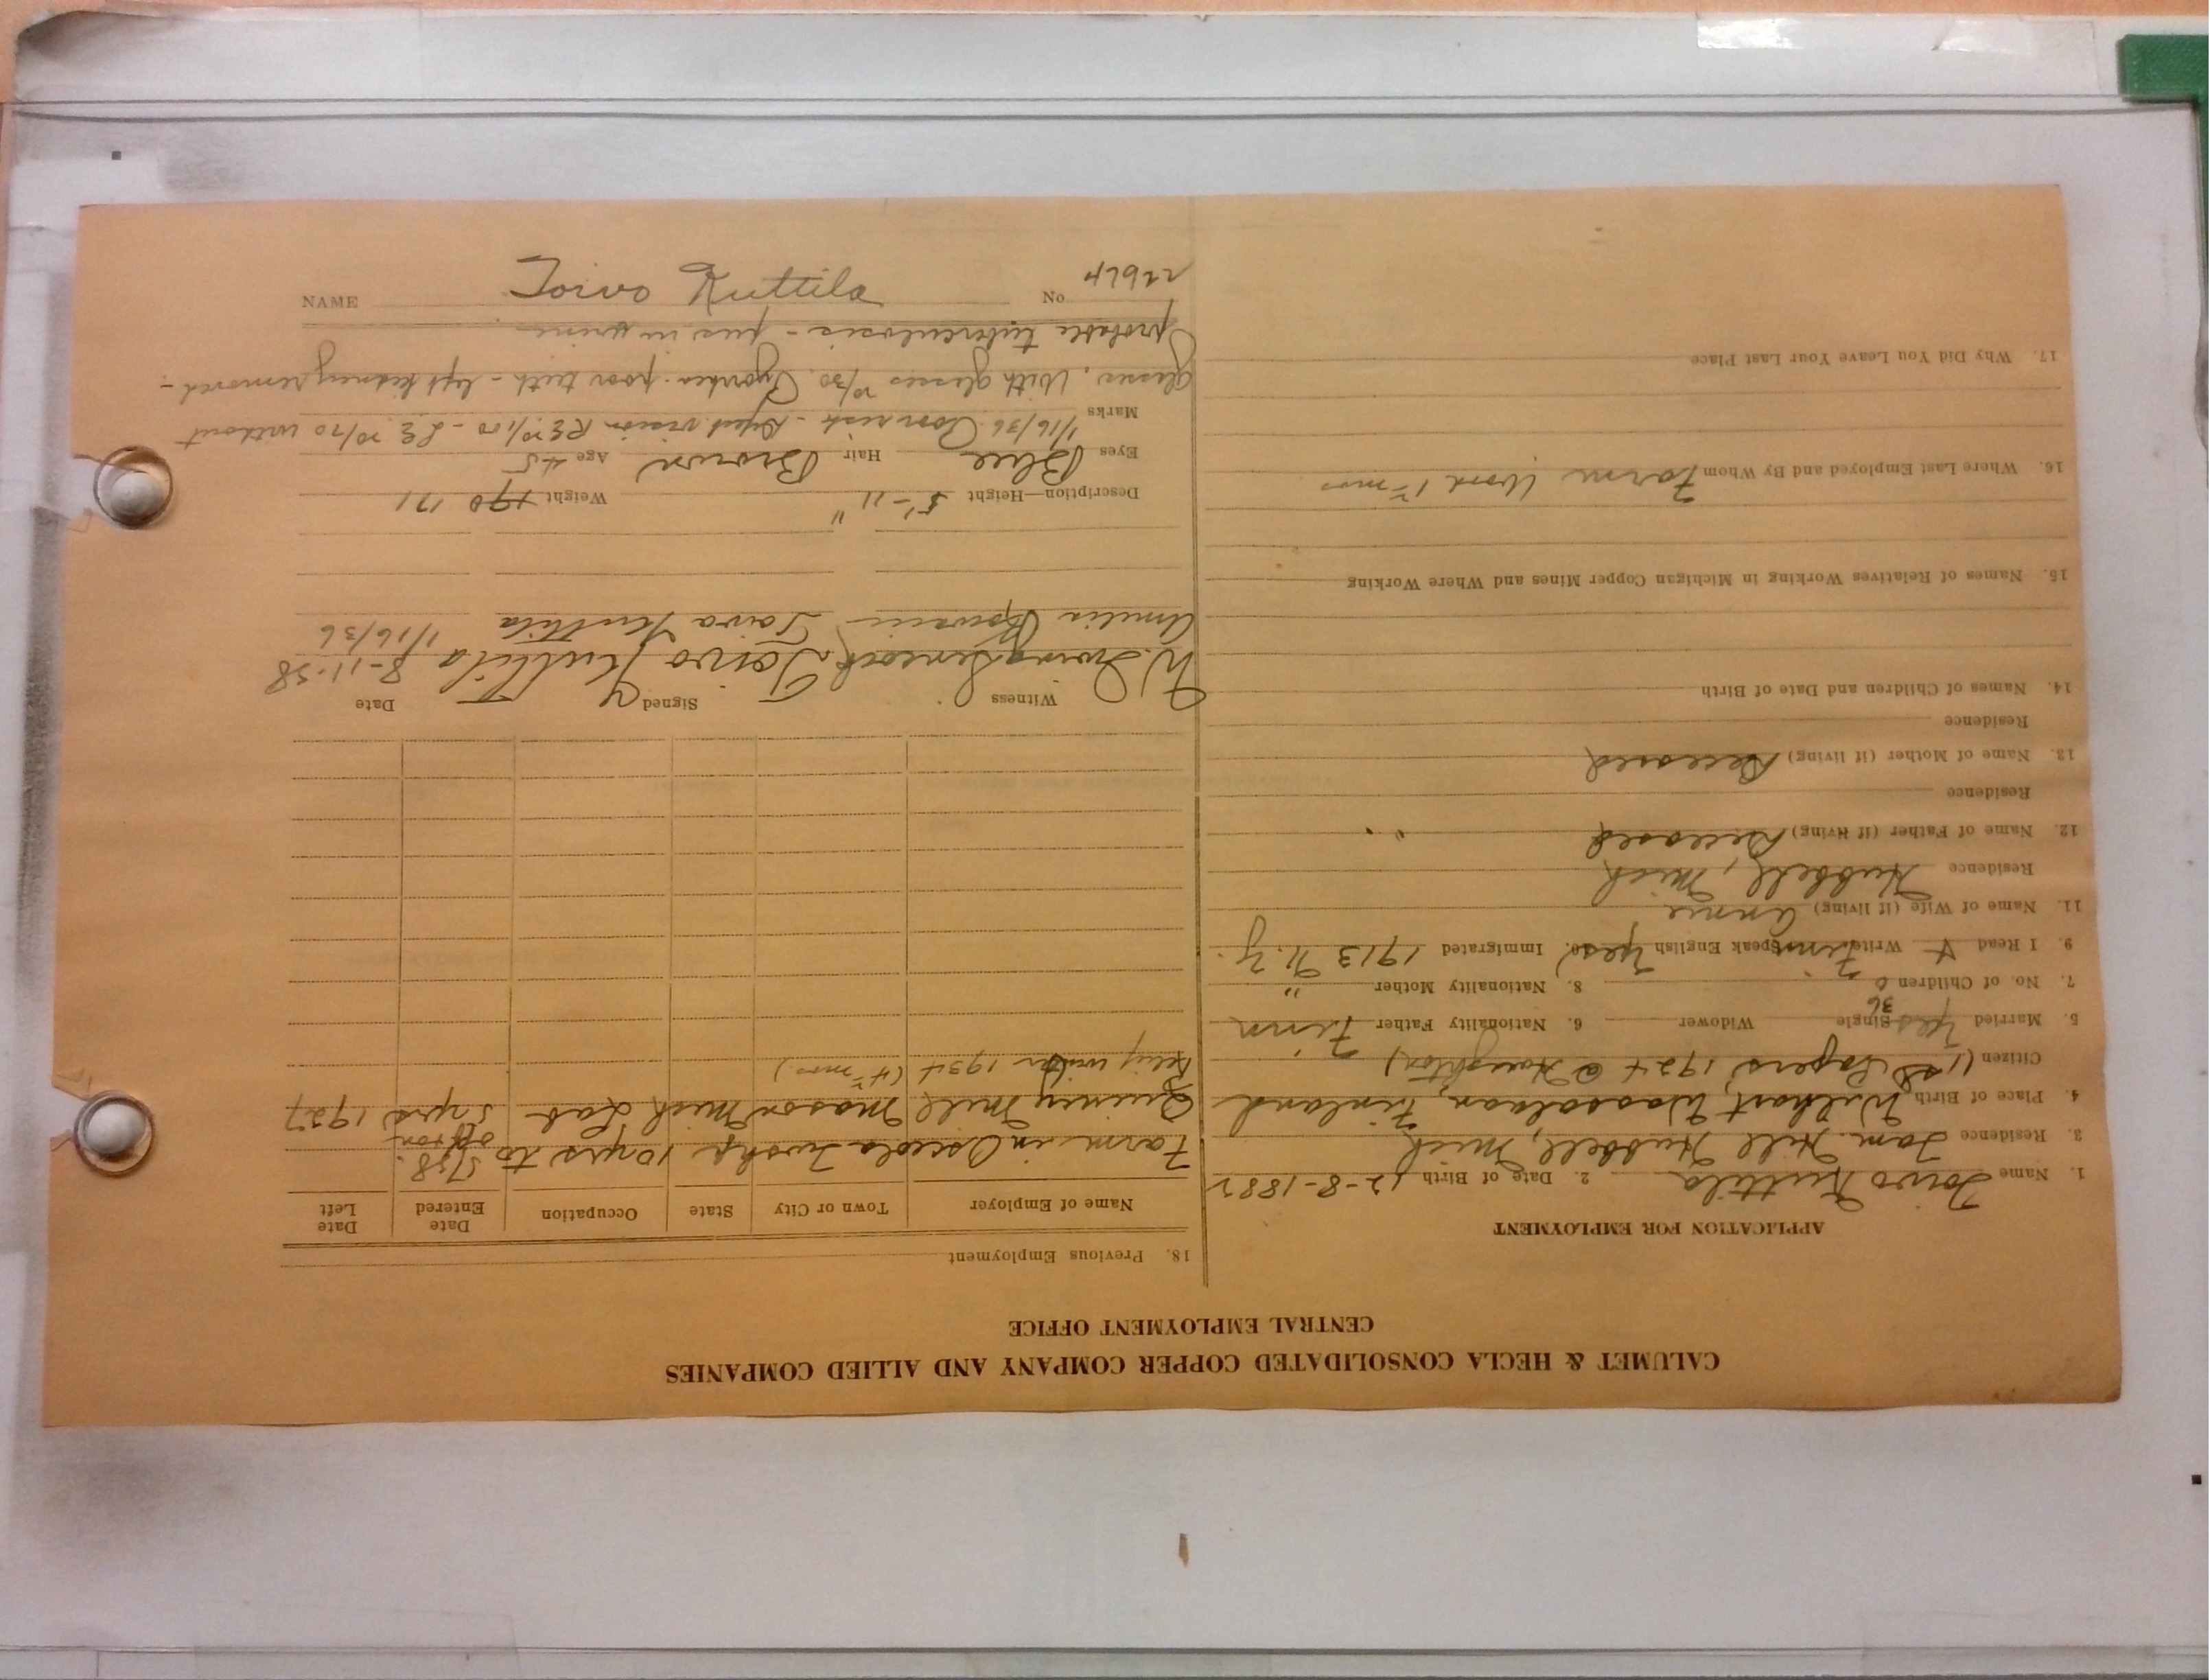 CALUMET & HECLA CONSOLIDATED COPPER COMPANY AND ALLIED COMPANIES
CENTRAL EMPLOYMENT OFFICE
APPLICATION FOR EMPLOYMENT
1. Name Toivo Kuttila 2. Date of Birth 12-8-1882
3. Residence Tam. Hill Hubbell, Mich
4. Place of Birth Finland
Citizen (1st Papers 1924 @ Houghton)
5. Married Yes 36 Single Widower 6. Nationality Father Finn
7. No. of Children 0 8. Nationality Mother "
9. I Read Write Finn Speak English Yes 10. Immigrated 1913 N.Y.
11. Name of Wife (if living) Annie
Residence Hubbell, Mich
12. Name of Father (if living) Deceased "
Residence
13. Name of Mother (if living) Deceased
Residence
14. Names of Children and Date of Birth
15. Names of Relatives Working in Michigan Copper Mines and Where Working
16. Where Last Employed and By Whom Farm Work
17. Why Did You Leave Your Last Place
18. Previous Employment
Name of Employer Town or City State Occupation Date Entered Date Left
Farm in Osceola Twshp 10 yrs to 5/38. off & on
Quincy Mill Mason Mich Lab 5 yrs 1927
Relief winter 1934 (4 mos.)
Witness Signed Date
Toivo Kuttila 8-11-38
Amelia Toivo Kuttila 1/16/36
Description—Height 5'-11" Weight 190 171
Eyes Blue Hair Brown Age 45
Marks 1/16/36 Poor risk - Defect. vision R.E. 20/100 - L.E. 20/70 without
glasses. With glasses 20/30. Pyorrhea - poor teeth - left kidney removed -
probable tuberculosis - pus in urine
NAME Toivo Kuttila No 22624